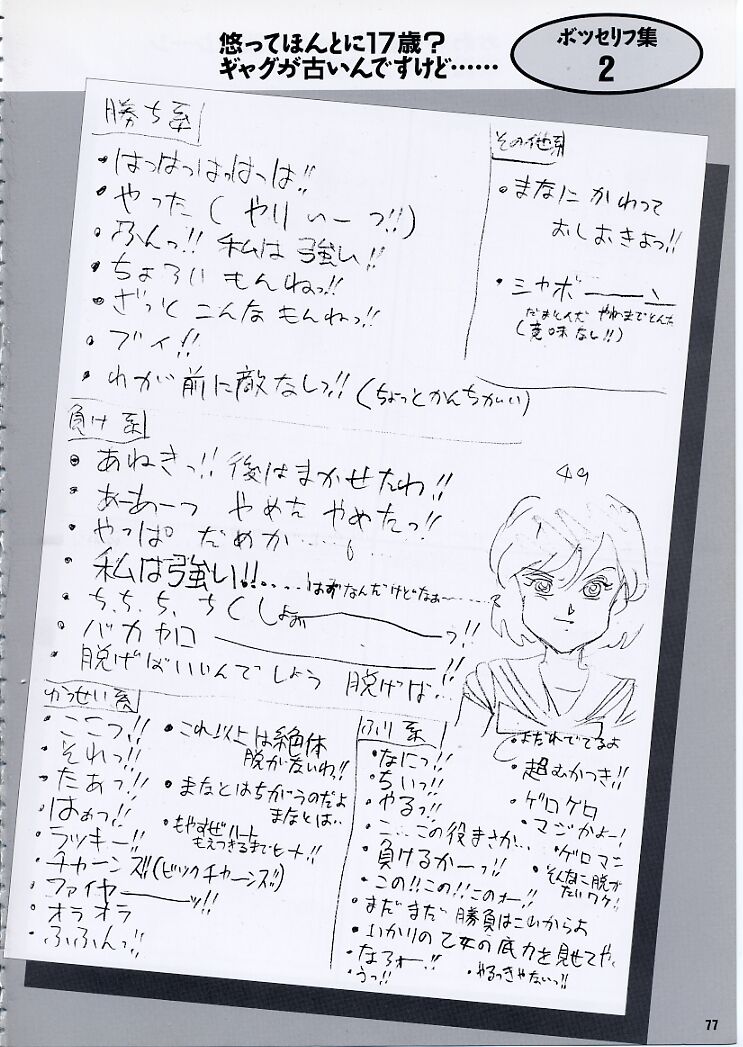 悠ってほんとに17歳？
ギャグが古いんですけど……
ボツセリフ集
2
勝ち系
・はっはっはっはっは!!
・やった(やりぃーっ!!)
・ふんっ!! 私は強い!!
・ちょろい もんねっ!!
・ざっと こんな もんねっ!!
・ブイ!!
・わが前に敵なしっ!!(ちょっとかんちがい)
その他系
・まなに かわって
おしおきよっ!!
・シャボーーン
だまとんだ やねまでとんだ
(意味なし!!)
負け系
・あねきっ!! 後はまかせたわ!!
・あーあーっ やめた やめたっ!!
・やっぱ だめか……
・私は強い!!‥‥はずなんだけどなぁ〜
・ち、ち、ち、ちくしょおおーーーっ!!
・バカヤロ―――――!!
・脱げばいいんでしょう 脱げば‥!!
49
かっせい系
・ここっ!!
・それっ!!
・たぁっ!!
・はぁっ!!
・ラッキー!!
・チャーンズ(ビックチャーンズ)
・ファイヤーーーッ!!
・オラオラ
・ふふんっ!!
・これ以上は絶体
脱がないわ!!
・まなとはちがうのだよ
まなとは‥
・もやすぜハート
もえつきるまでヒート!!
ふり系
・なにっ!!
・ちいっ!!
・やるっ!!
・こ…この役まさか…
・負けるかーっ!!
・この!!この!!このォー!!
・まだまだ 勝負はこれからよ
・いかりの乙女の底力を見せてやる
・なろォー!!
・うっ!!
・やるっきゃないっ!!
・まだれでてるよ
・超むかつき!!
・ゲロゲロ
・マジかよー!
・ゲロマニ
・そんなに脱が
たいワケ!
77